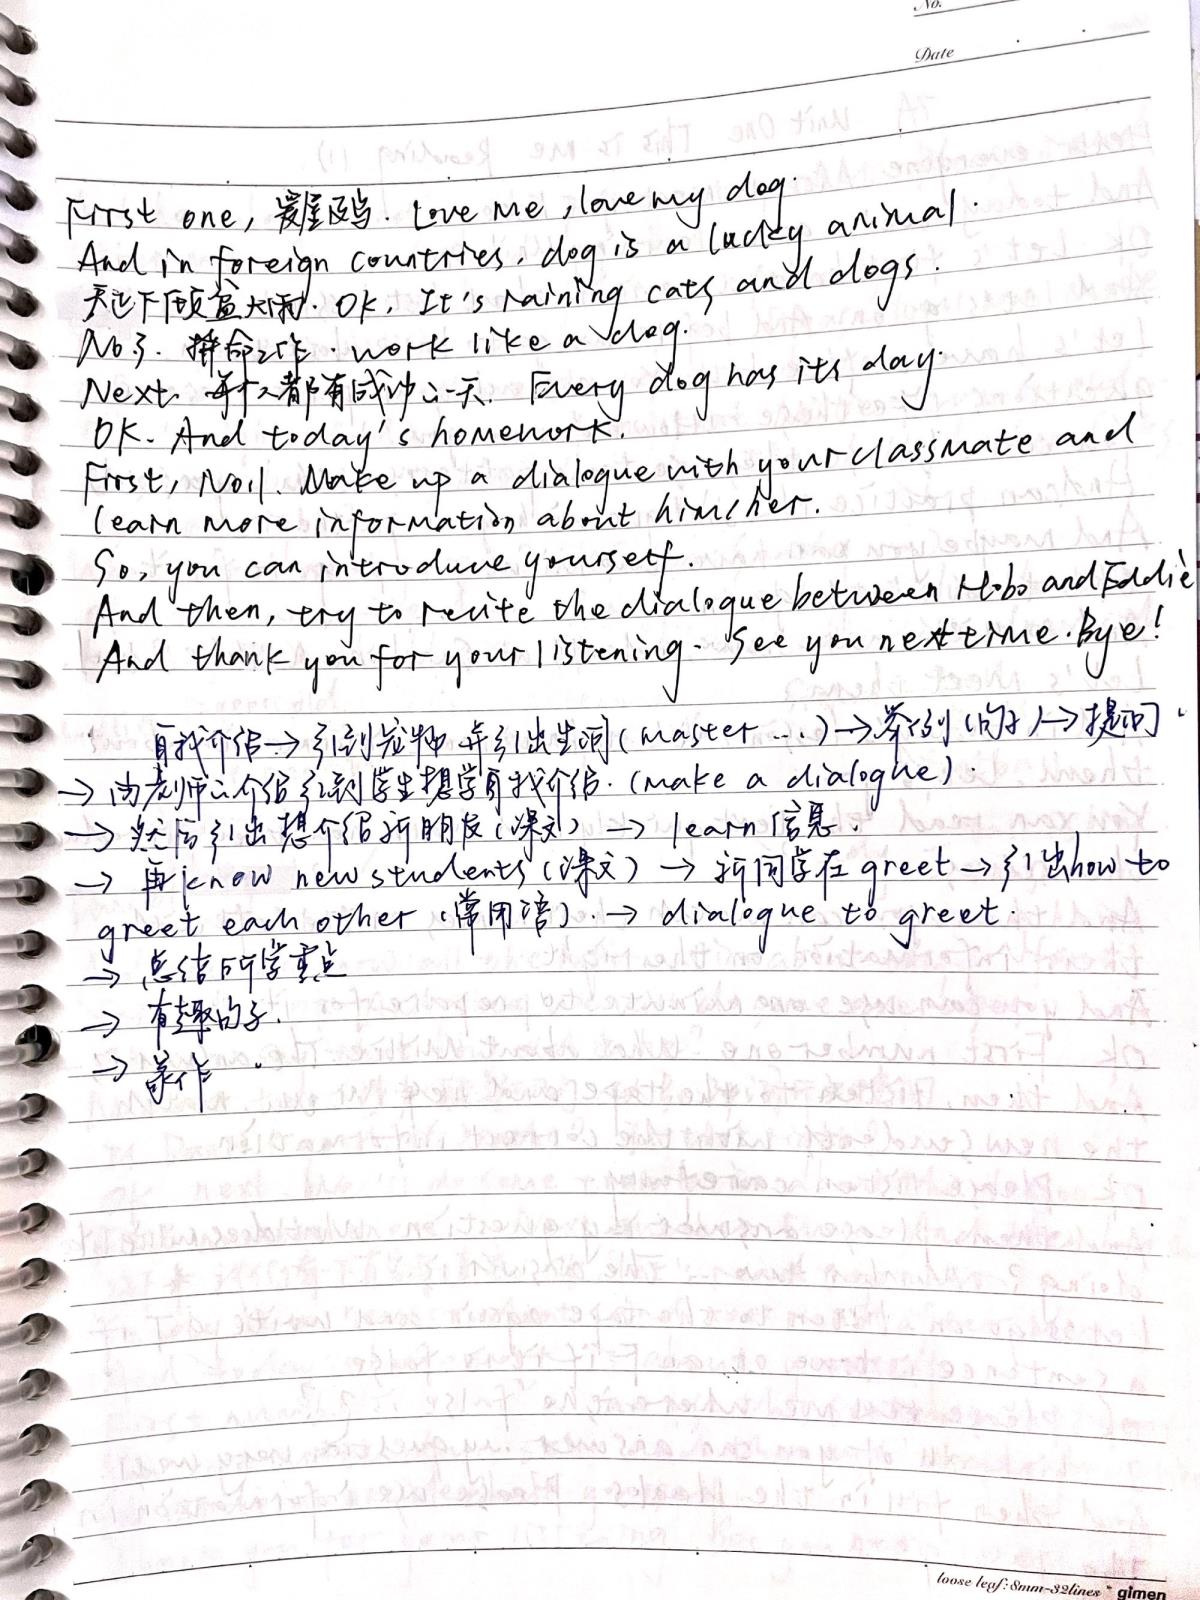 No.
Date
First one, 爱屋及乌. Love me, love my dog.
And in foreign countries, dog is a lucky animal.
天上下倾盆大雨. OK, It's raining cats and dogs.
No.3. 拼命工作. work like a dog.
Next. 每个人都有成功之一天. Every dog has its day.
OK. And today's homework.
First, No.1. Make up a dialogue with your classmate and
learn more information about him/her.
So, you can introduce yourself.
And then, try to recite the dialogue between Hobo and Eddie
And thank you for your listening. See you next time. Bye!
自我介绍→引到宠物 并引出生词(master ...)→举例(句子)→提问.
→由老师之介绍引到学生想学自我介绍. (make a dialogue).
→然后引出想介绍新朋友(课文)→learn 信息.
→再know new students(课文)→新同学在greet→引出how to
greet each other (常用语).→dialogue to greet.
→总结所学重点
→有趣句子.
→录作.
loose leaf: 8mm-32lines gimen